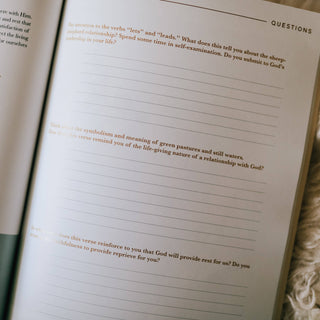 QUESTIONS
with Him.
and rest that
satisfaction of
the living
ourselves
attention to the verbs “lets” and “leads.” What does this tell you about the sheep-
relationship? Spend some time in self-examination. Do you submit to God’s
in your life?
the symbolism and meaning of green pastures and still waters.
this verse remind you of the life-giving nature of a relationship with God?
this verse reinforce to you that God will provide rest for us? Do you
to provide reprieve for you?